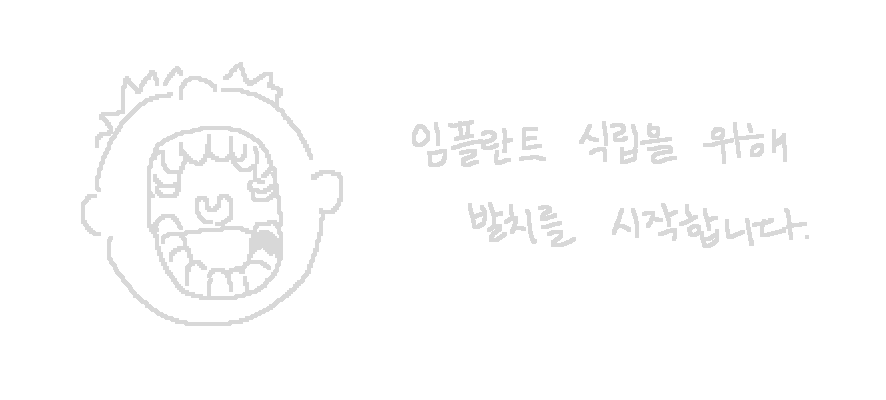 임플란트 식립을 위해
발치를 시작합니다.